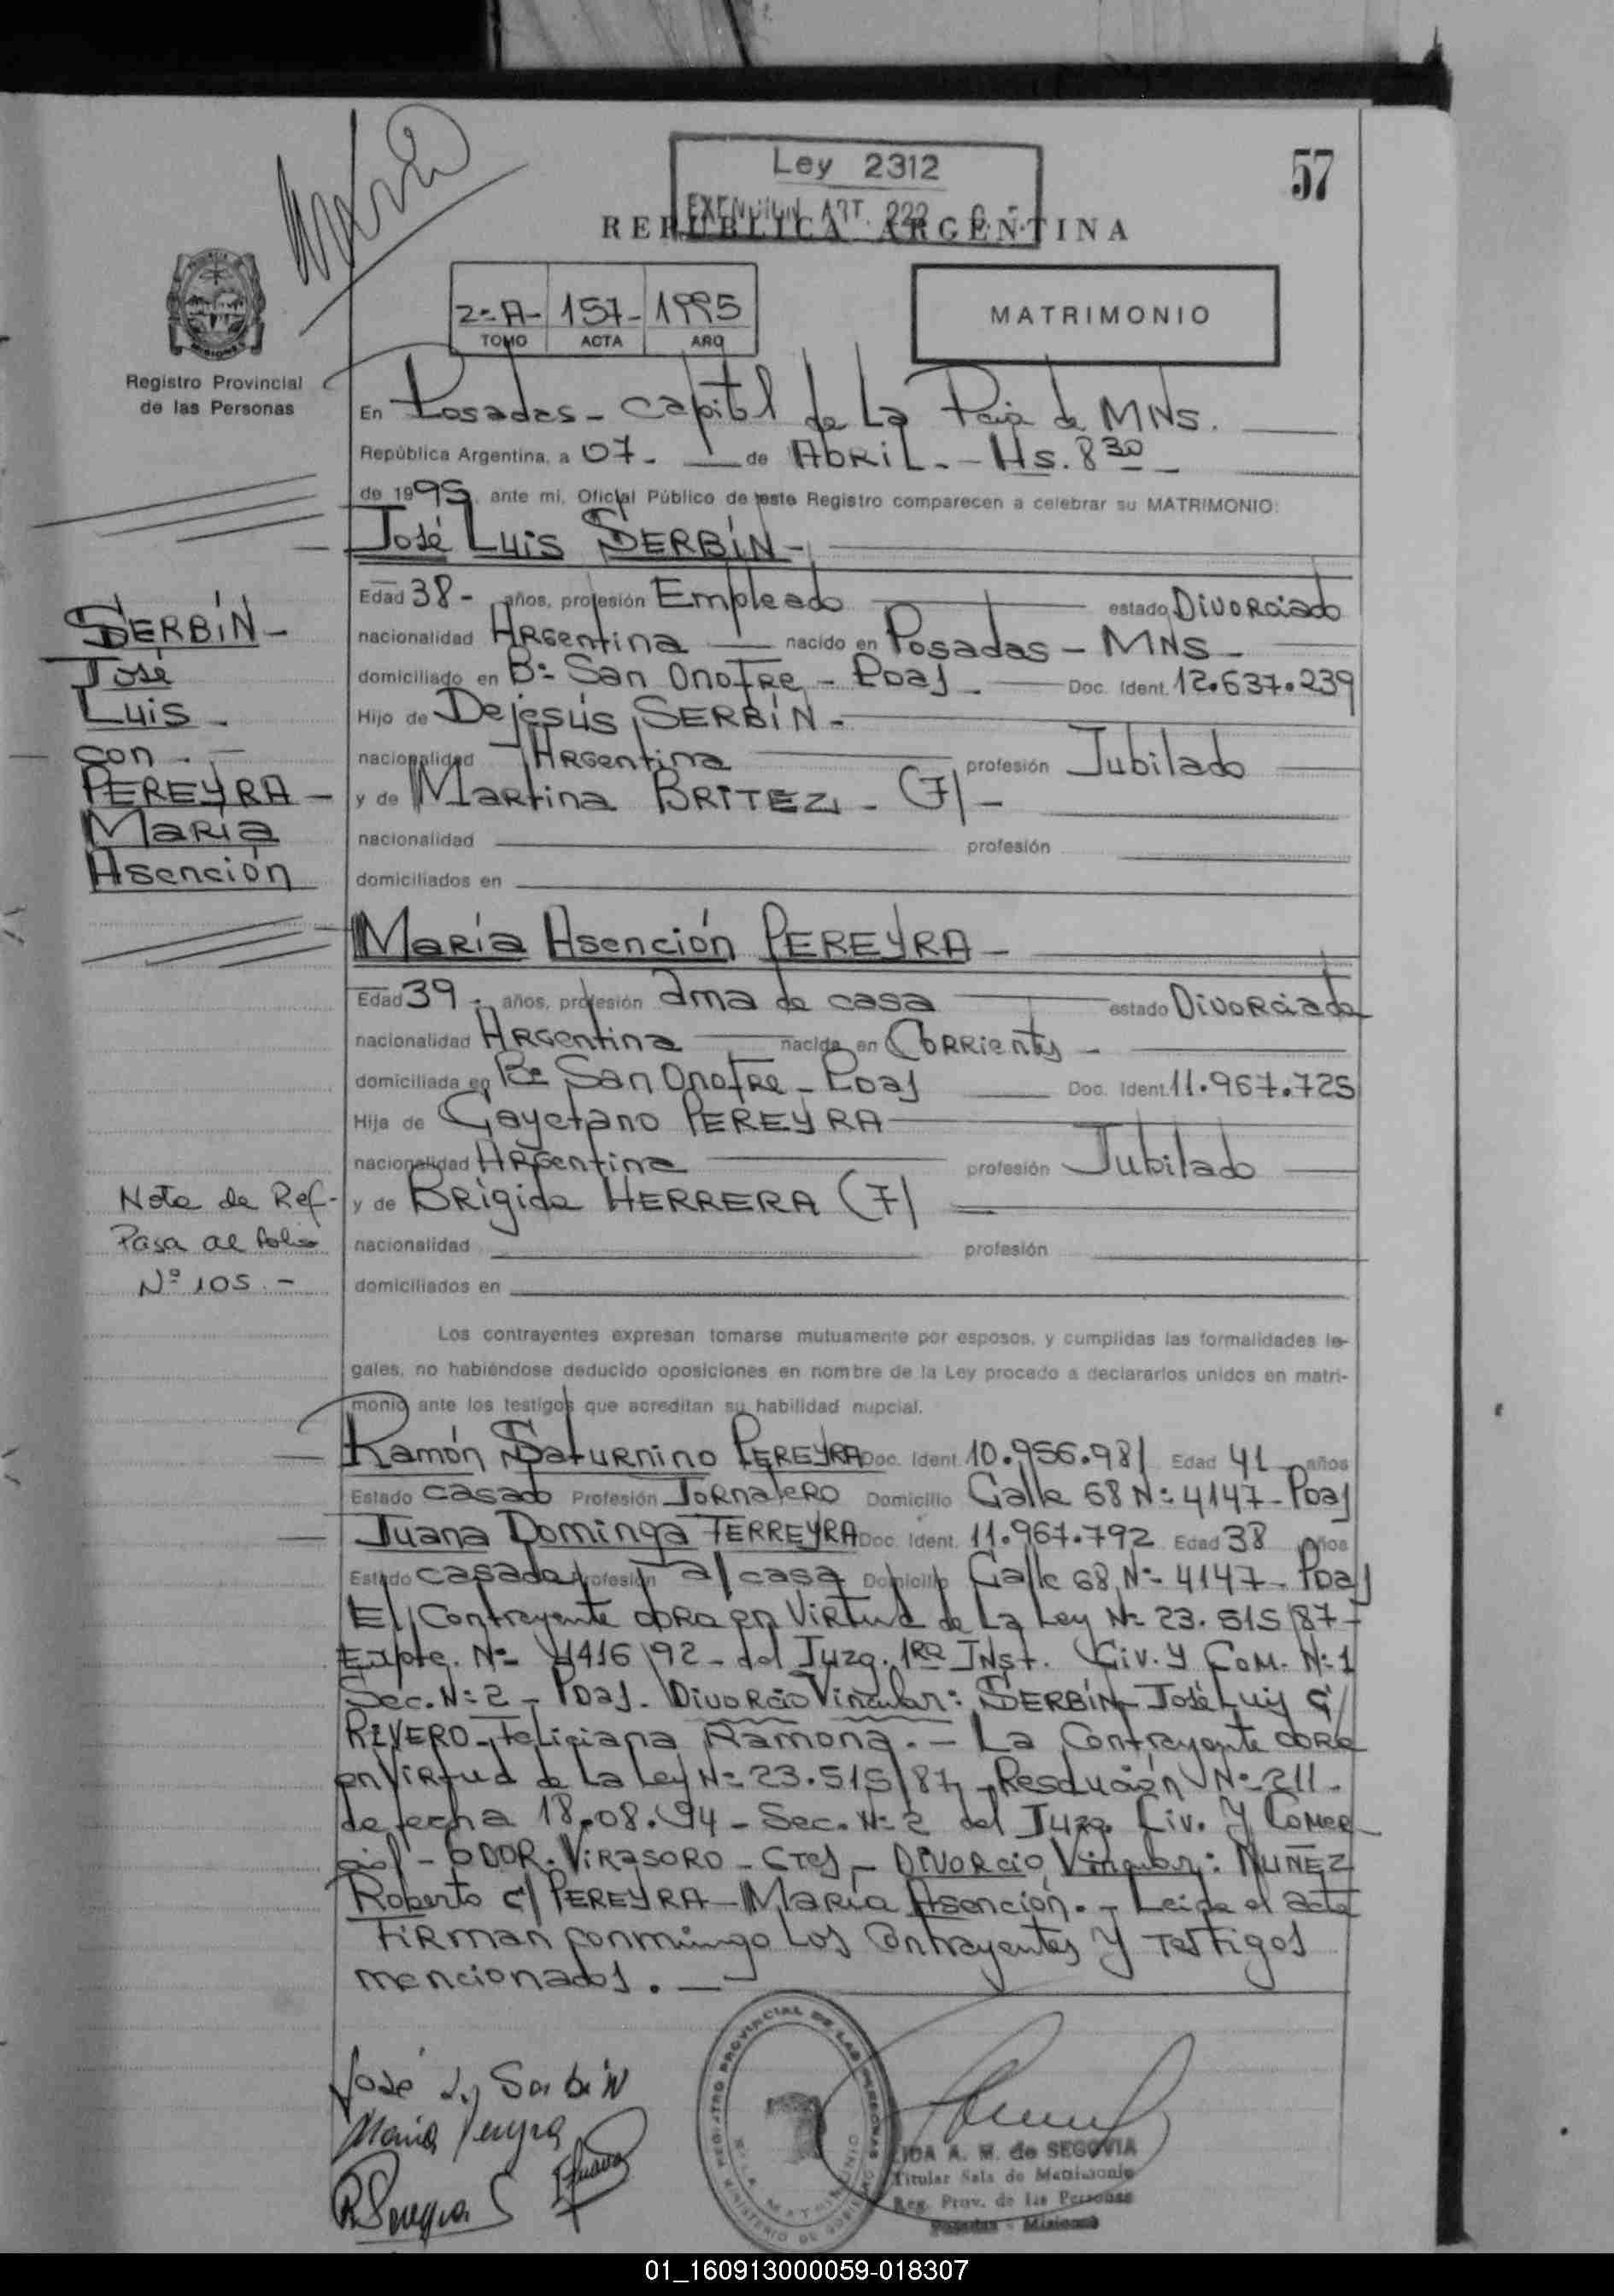 57
Ley 2312
EXENCION ART. 222
REPUBLICA ARGENTINA
2=A- 157- 1995
TOMO ACTA AÑO
MATRIMONIO
Registro Provincial
de las Personas
En Posadas - Capital de La Pcia de MNS.
República Argentina, a 07- de ABRIL. - Hs. 8 30
de 1995, ante mi, Oficial Público de este Registro comparecen a celebrar su MATRIMONIO:
José Luis SERBÍN -
SERBÍN -
José
Luis -
con -
PEREYRA -
María
Asención
Edad 38 - años, profesión Empleado estado Divorciado
nacionalidad Argentina nacido en Posadas - MNS -
domiciliado en B= San Onofre - Pdas - Doc. Ident. 12.637.239
Hijo de Dejesús SERBÍN -
nacionalidad Argentina profesión Jubilado
y de Martina BRITEZ - (7) -
nacionalidad profesión
domiciliados en
María Asención PEREYRA -
Edad 39 - años, profesión ama de casa estado Divorciada
nacionalidad Argentina nacida en Corrientes -
domiciliada en B= San Onofre - Pdas Doc. Ident. 11.967.725
Hija de Cayetano PEREYRA
nacionalidad Argentina profesión Jubilado
y de Brígida HERRERA (7)
nacionalidad profesión
domiciliados en
Nota de Ref-
Pasa al folio
Nº 105. -
Los contrayentes expresan tomarse mutuamente por esposos, y cumplidas las formalidades le-
gales, no habiéndose deducido oposiciones en nombre de la Ley procedo a declararlos unidos en matri-
monio ante los testigos que acreditan su habilidad nupcial.
Ramón Saturnino PEREYRA Doc. Ident. 10.956.981 Edad 41 años
Estado casado Profesión Jornalero Domicilio Calle 68 N= 4147 - Pdas
Juana Dominga FERREYRA Doc. Ident. 11.967.792 Edad 38 años
Estado casada Profesión a/casa Domicilio Calle 68 N= 4147 - Pdas
El Contrayente obra en Virtud de La Ley N= 23.515/87 -
Expte. N= 4416/92 - del Juzg. 1RA Inst. Civ. y Com. N=1
Sec. N=2 - Pdas. Divorcio Vincular: SERBÍN José Luis C/
RIVERO - Feliciana Ramona. - La Contrayente obra
en Virtud de La Ley N= 23.515/87, Resolución N= 211 -
de fecha 18.08.94 - Sec. N=2 del Juzg. Civ. y Comer
cial - GDOR. VIRASORO - Ctes - Divorcio Vincular: NUÑEZ
Roberto c/ PEREYRA - María Asención. - Leída el acta
Firman conmigo Los Contrayentes y Testigos
mencionados. -
José L. Serbin
María Pereyra
REGISTRO PROVINCIAL DE LAS PERSONAS
MINISTERIO DE GOBIERNO
LIDA A. M. de SEGOVIA
Titular Sala de Matrimonio
Reg. Prov. de las Personas
Posadas - Misiones
01_160913000059-018307